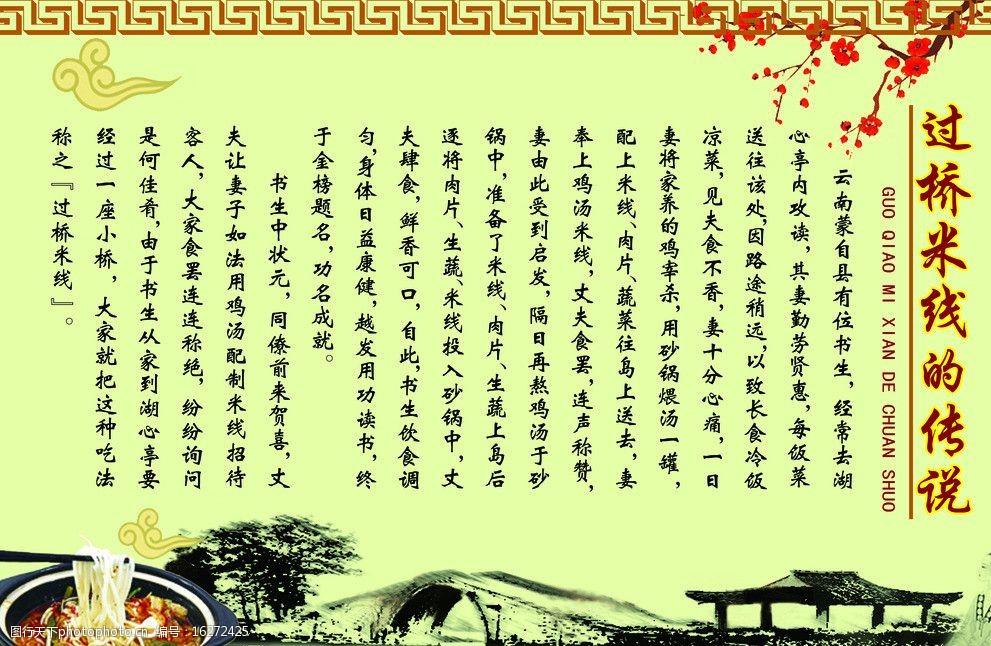 过桥米线的传说
GUO QIAO MI XIAN DE CHUAN SHUO
云南蒙自县有位书生，经常去湖
心亭内攻读，其妻勤劳贤惠，每饭菜
送往该处，因路途稍远，以致长食冷饭
凉菜，见夫食不香，妻十分心痛，一日
妻将家养的鸡宰杀，用砂锅煨汤一罐，
配上米线、肉片、蔬菜往岛上送去，妻
奉上鸡汤米线，丈夫食罢，连声称赞，
妻由此受到启发，隔日再熬鸡汤于砂
锅中，准备了米线、肉片、生蔬上岛后
逐将肉片、生蔬、米线投入砂锅中，丈
夫肆食，鲜香可口，自此，书生饮食调
匀，身体日益康健，越发用功读书，终
于金榜题名，功名成就。
书生中状元，同僚前来贺喜，丈
夫让妻子如法用鸡汤配制米线招待
客人，大家食罢连连称绝，纷纷询问
是何佳肴，由于书生从家到湖心亭要
经过一座小桥，大家就把这种吃法
称之『过桥米线』。
图行天下photophoto.cn 编号：16272425